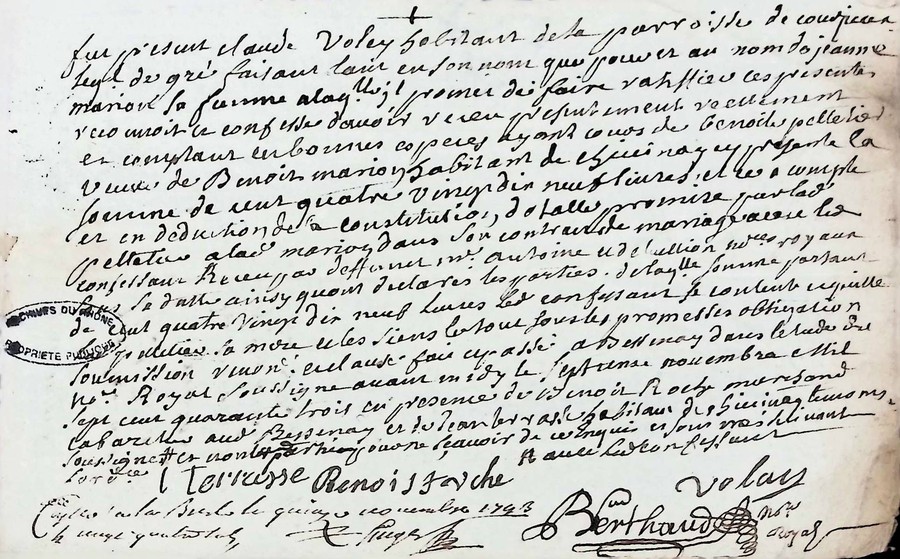 fut present claude Voley habitant de la parroisse de
lequel de gré faisant tant en son nom que pour et au nom de jeanne
marion sa femme a laq.lle il promet de faire ratiffier ces presentes
reconnoit et confesse d'avoir receu presentement reellement
et comptant en bonnes especes ayant cours de benoite pelletier
veuve de Benoit marion habitante de chivinay cy presente la
somme de cent quatre vingt dix neuf livres et ce a compte
et en deduction de la constitution dotalle promise par lad
pelletier a lad marion dans son contrat de mariage avec led
confessant Receu par deffunct m.e Antoine no.re royaux
sous sa datte ainsy qu'ont declaré les parties de laq.lle somme partant
de cent quatre vingt dix neuf livres led confessant se contente et quitte
lad pelletier sa mere et les siens le tout sous les promesses obligation
soumission renon. et clause fait et passé a Bessenay dans l'etude du
no.re Royal soussigné avant midy le sept novembre mil
sept cent quarante trois en presence de Benoit Roche marchand
cabaretier aud Bessenay et de jean terrasse habitant de chivinay temoins
soussignes et non lad pelletier pour ne sçavoir de ce enquis et sommés suivant
l'ord.ce # avec led confessant
J Terrasse Benoist Roche Voley
Berthaud no.re Royal
Con.lé a la le quinze novembre 1743
R douze
ARCHIVES DU RHÔNE
PROPRIÉTÉ PUBLIQUE